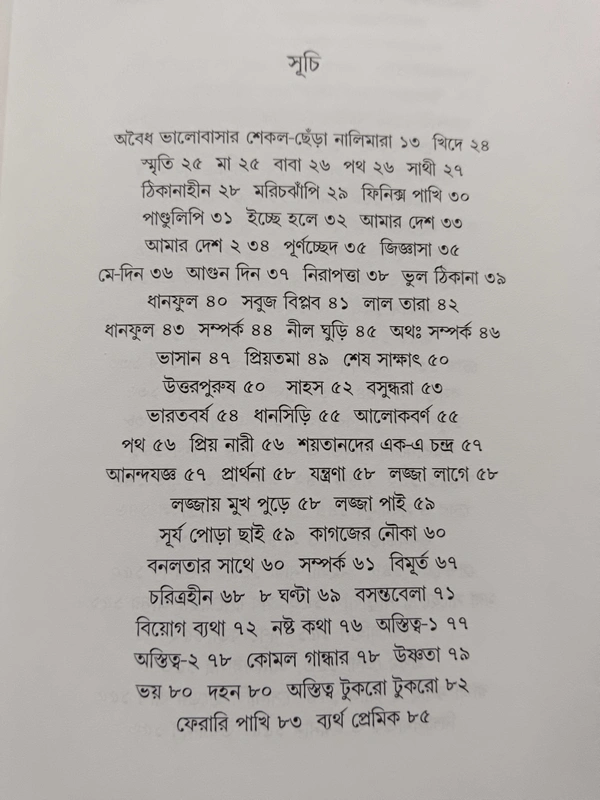 সূচি
অবৈধ ভালোবাসার শেকল-ছেঁড়া নালিমারা ১৩ খিদে ২৪
স্মৃতি ২৫ মা ২৫ বাবা ২৬ পথ ২৬ সাথী ২৭
ঠিকানাহীন ২৮ মরিচঝাঁপি ২৯ ফিনিক্স পাখি ৩০
পাণ্ডুলিপি ৩১ ইচ্ছে হলে ৩২ আমার দেশ ৩৩
আমার দেশ ২ ৩৪ পূর্ণচ্ছেদ ৩৫ জিজ্ঞাসা ৩৫
মে-দিন ৩৬ আগুন দিন ৩৭ নিরাপত্তা ৩৮ ভুল ঠিকানা ৩৯
ধানফুল ৪০ সবুজ বিপ্লব ৪১ লাল তারা ৪২
ধানফুল ৪৩ সম্পর্ক ৪৪ নীল ঘুড়ি ৪৫ অথঃ সম্পর্ক ৪৬
ভাসান ৪৭ প্রিয়তমা ৪৯ শেষ সাক্ষাৎ ৫০
উত্তরপুরুষ ৫০ সাহস ৫২ বসুন্ধরা ৫৩
ভারতবর্ষ ৫৪ ধানসিড়ি ৫৫ আলোকবর্ণ ৫৫
পথ ৫৬ প্রিয় নারী ৫৬ শয়তানদের এক-এ চন্দ্র ৫৭
আনন্দযজ্ঞ ৫৭ প্রার্থনা ৫৮ যন্ত্রণা ৫৮ লজ্জা লাগে ৫৮
লজ্জায় মুখ পুড়ে ৫৮ লজ্জা পাই ৫৯
সূর্য পোড়া ছাই ৫৯ কাগজের নৌকা ৬০
বনলতার সাথে ৬০ সম্পর্ক ৬১ বিমূর্ত ৬৭
চরিত্রহীন ৬৮ ৮ ঘণ্টা ৬৯ বসন্তবেলা ৭১
বিয়োগ ব্যথা ৭২ নষ্ট কথা ৭৬ অস্তিত্ব-১ ৭৭
অস্তিত্ব-২ ৭৮ কোমল গান্ধার ৭৮ উষ্ণতা ৭৯
ভয় ৮০ দহন ৮০ অস্তিত্ব টুকরো টুকরো ৮২
ফেরারি পাখি ৮৩ ব্যর্থ প্রেমিক ৮৫